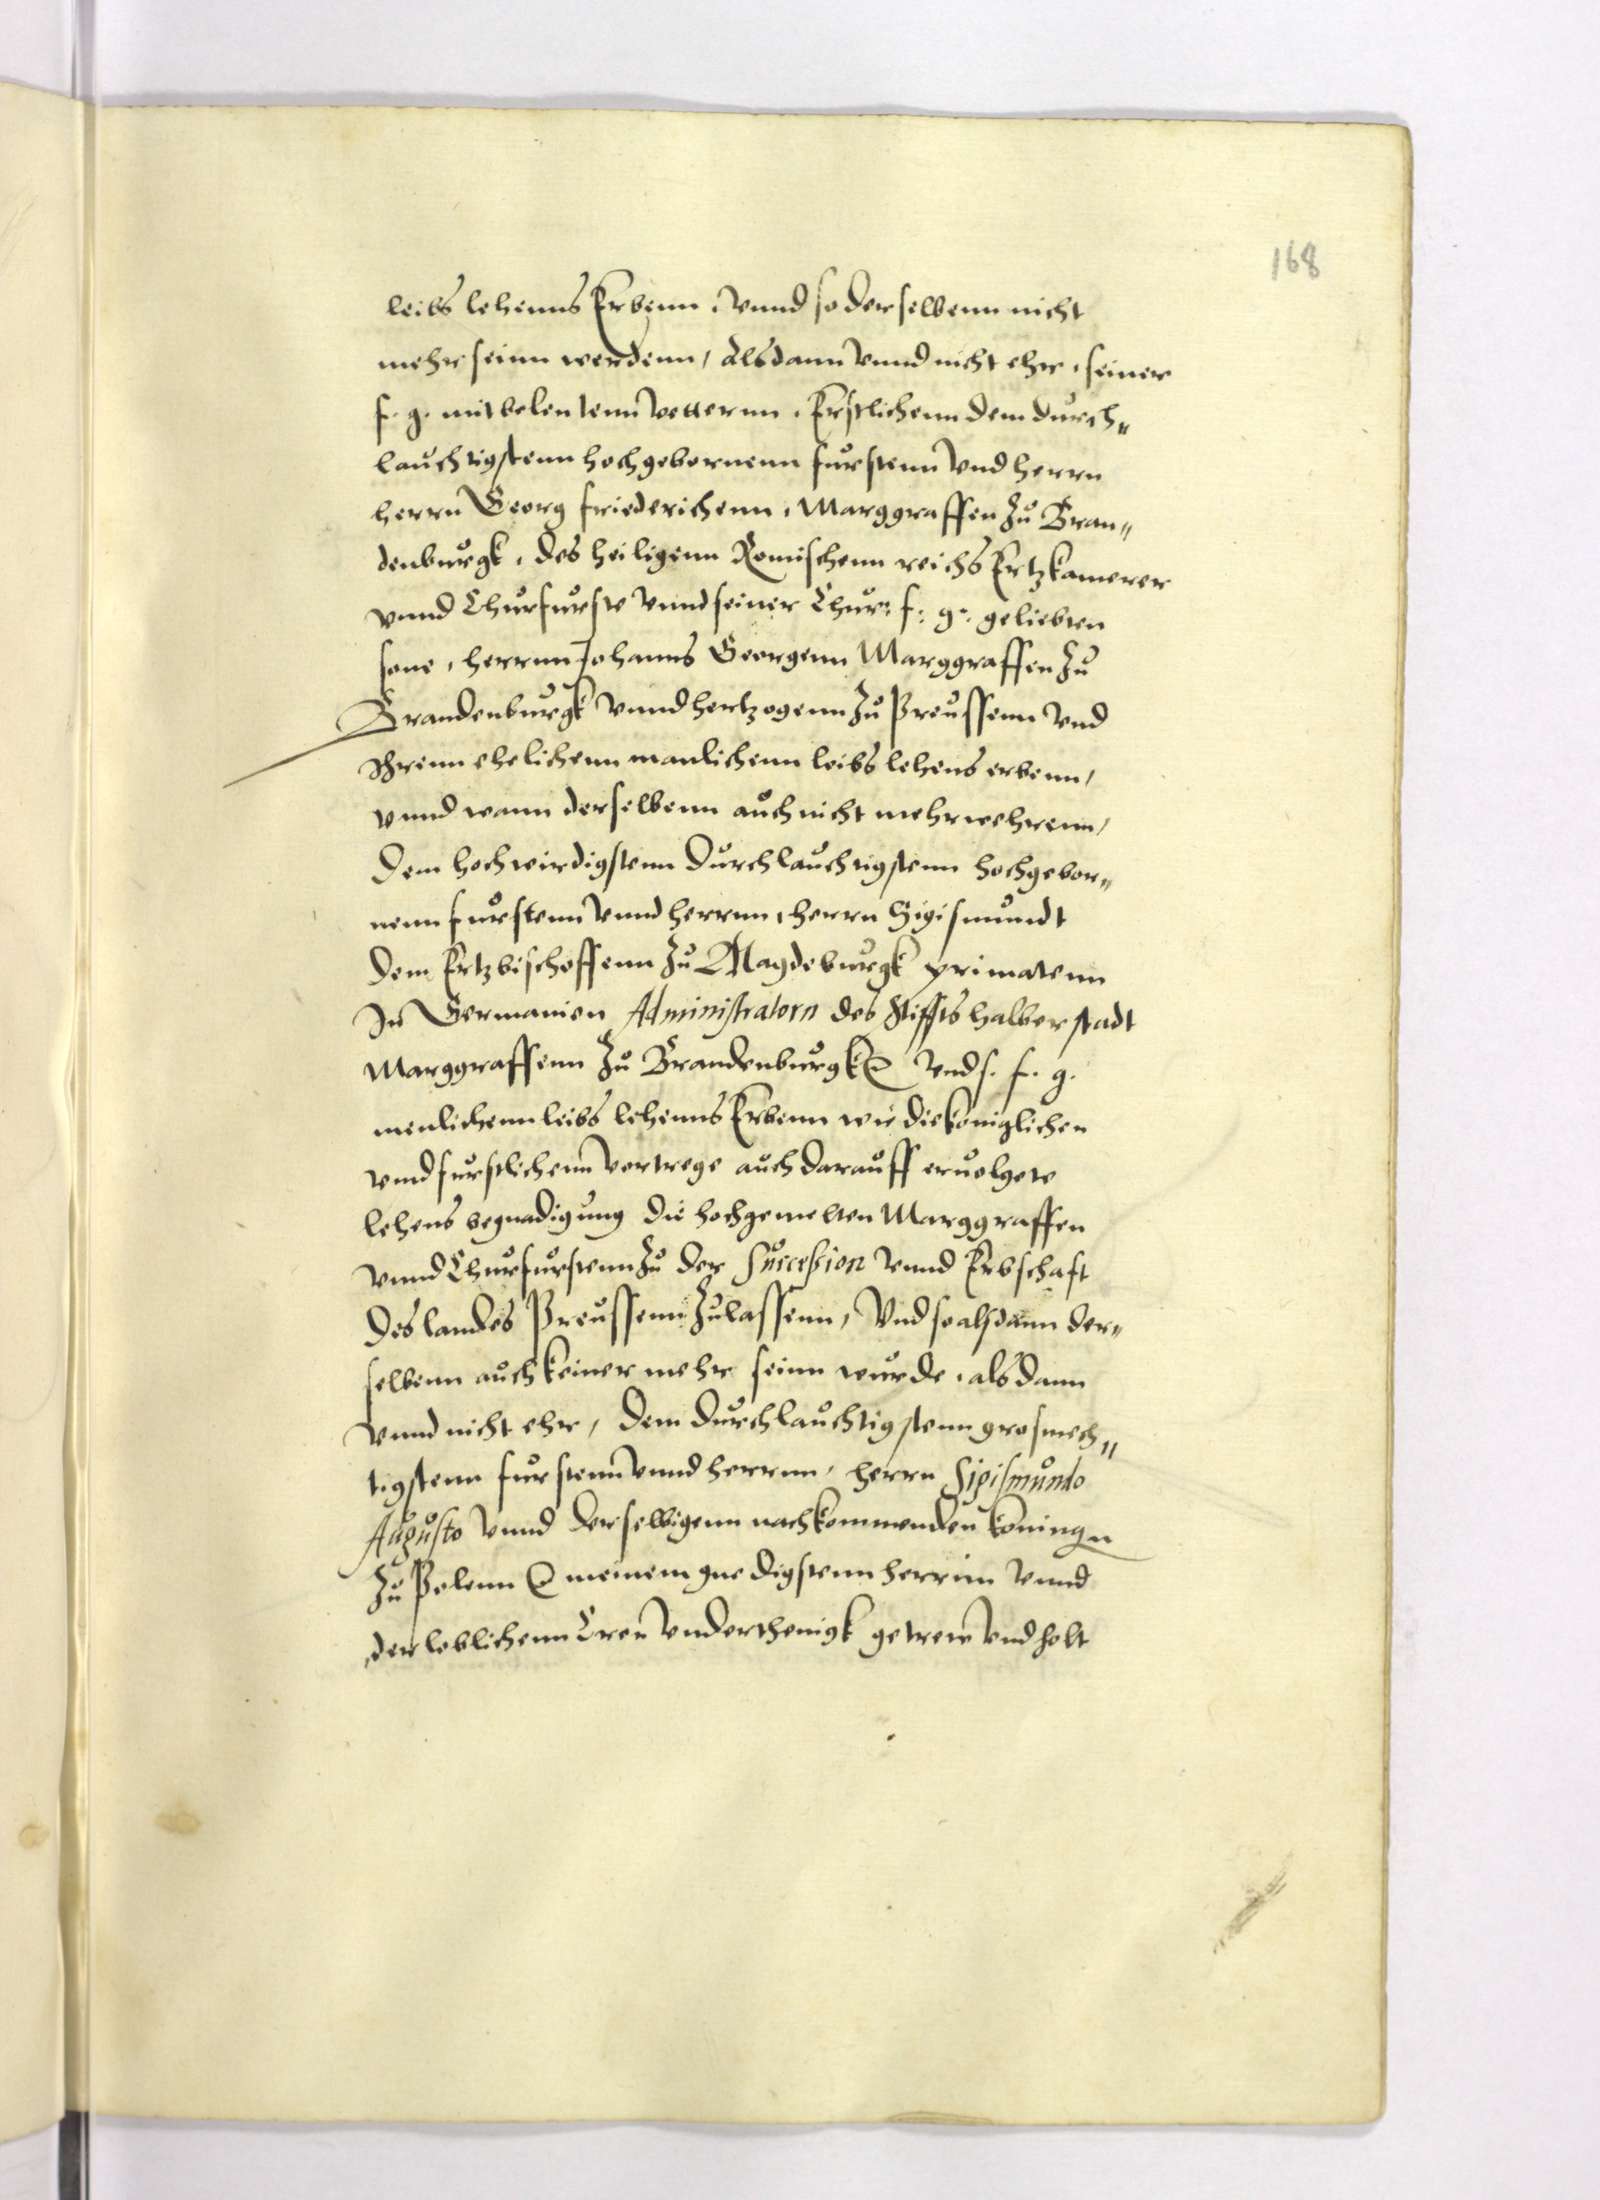 168
leibs lehenns Erbenn, vnnd so derselbenn nicht
mehr seinn werdenn, Alsdann vnnd nicht ehr, seiner
f. g. mitbelentenn vetternn, Erstlichenn dem durch„
lauchtigstenn hochgebornenn furstenn vnd herrn
herrn Georg friederichenn, Marggraffen zu Bran„
denburgk, des heiligenn Romischenn reichs Ertzkamerer
vnnd Churfurste vnnd seiner Chur: f: g: geliebten
sone, herrnn Johanns Georgenn Marggraffen zu
Brandenburgk vnnd hertzogenn zu Preussenn vnd
Ihrenn ehelichenn manlichenn leibs lehens erbenn,
vnnd wann derselbenn auch nicht mehr wehrenn,
dem hochwirdigstenn durchlauchtigstenn hochgebor„
nenn furstenn vnnd herrnn, herrn Sigismundt
dem Ertzbischoffenn zu Magdeburgk primatenn
In Germanien Administratorn des Stiffts halberstadt
Marggraffenn zu Brandenburgk vnd s. f. g.
menlichenn leibs lehenns Erbenn wie die koniglichen
vnnd furstlichenn vertrege auch darauff eruolgete
lehens begnadigung die hochgemelten Marggraffen
vnnd Churfurstenn zu der Succession vnnd Erbschaft
des landes Preussenn zulassenn, Vnd so alsdann der„
selbenn auch keiner mehr seinn wurde, alsdann
vnnd nicht ehr, dem durchlauchtigstenn grosmech„
tigstenn furstenn vnnd herrnn, herrn Sigismundo
Augusto vnnd derselbigenn nachkommenden koningn
zu Polenn meinem gnedigstenn herrnn vnnd
der loblichenn Cron vnderthenigk getrew vnd holt